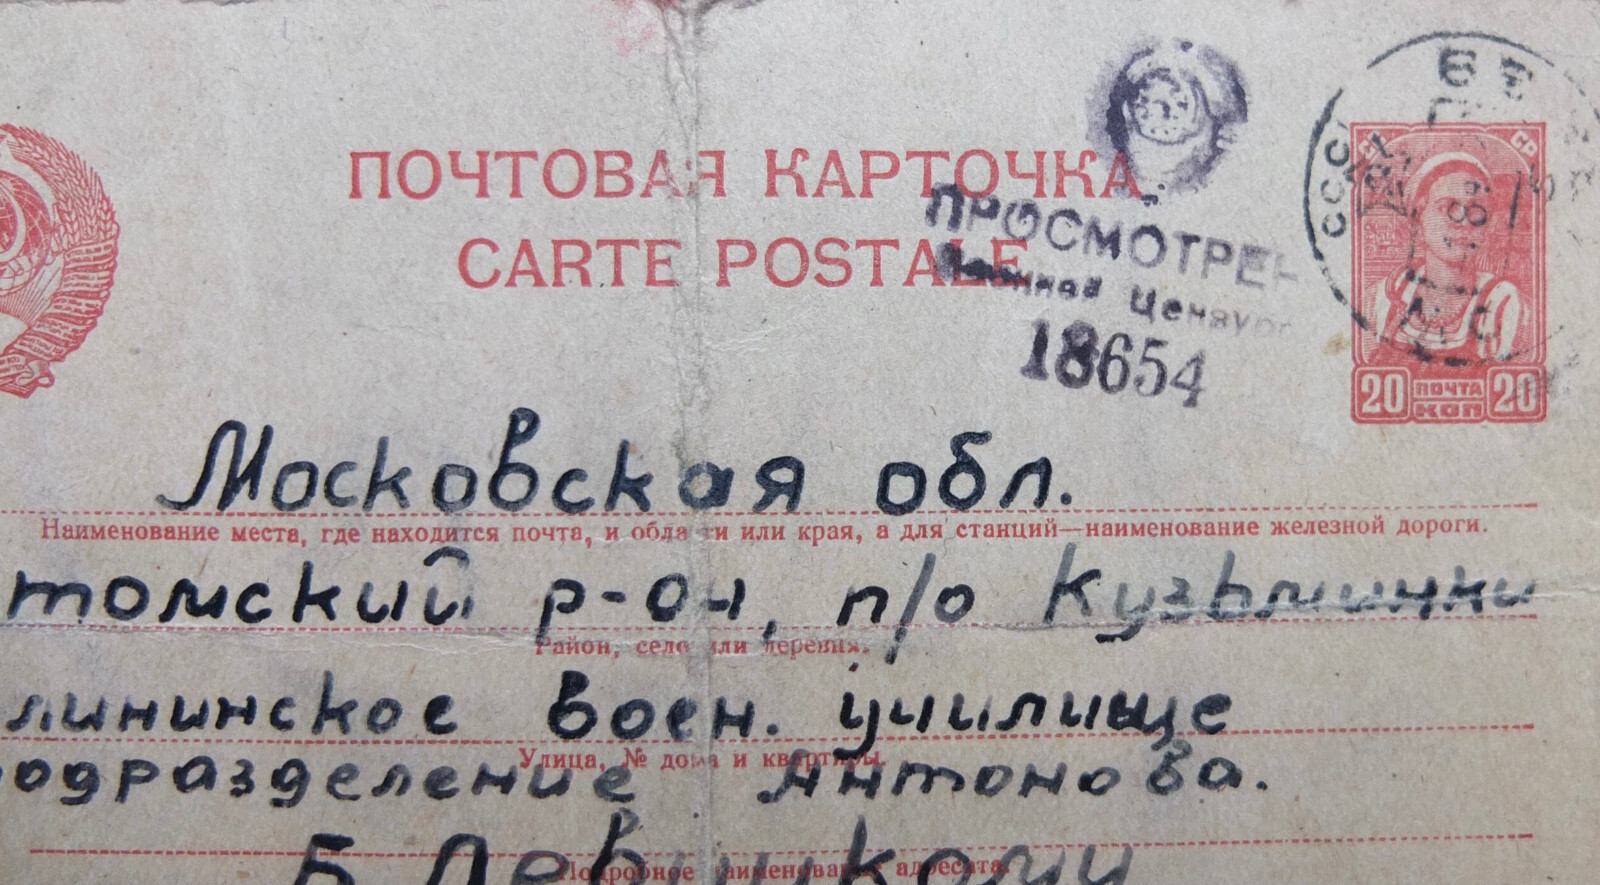 ПОЧТОВАЯ КАРТОЧКА
CARTE POSTALE
ПРОСМОТРЕН
Военной Цензур
18654
СССР
20 ПОЧТА 20
КОП
Московская обл.
Наименование места, где находится почта, и области или края, а для станций—наименование железной дороги.
томский р-он, п/о Кузьминки
Район, село или деревня.
лининское воен. училище
Улица, № дома и квартиры.
подразделение Антонова.
Подробное наименование адресата.